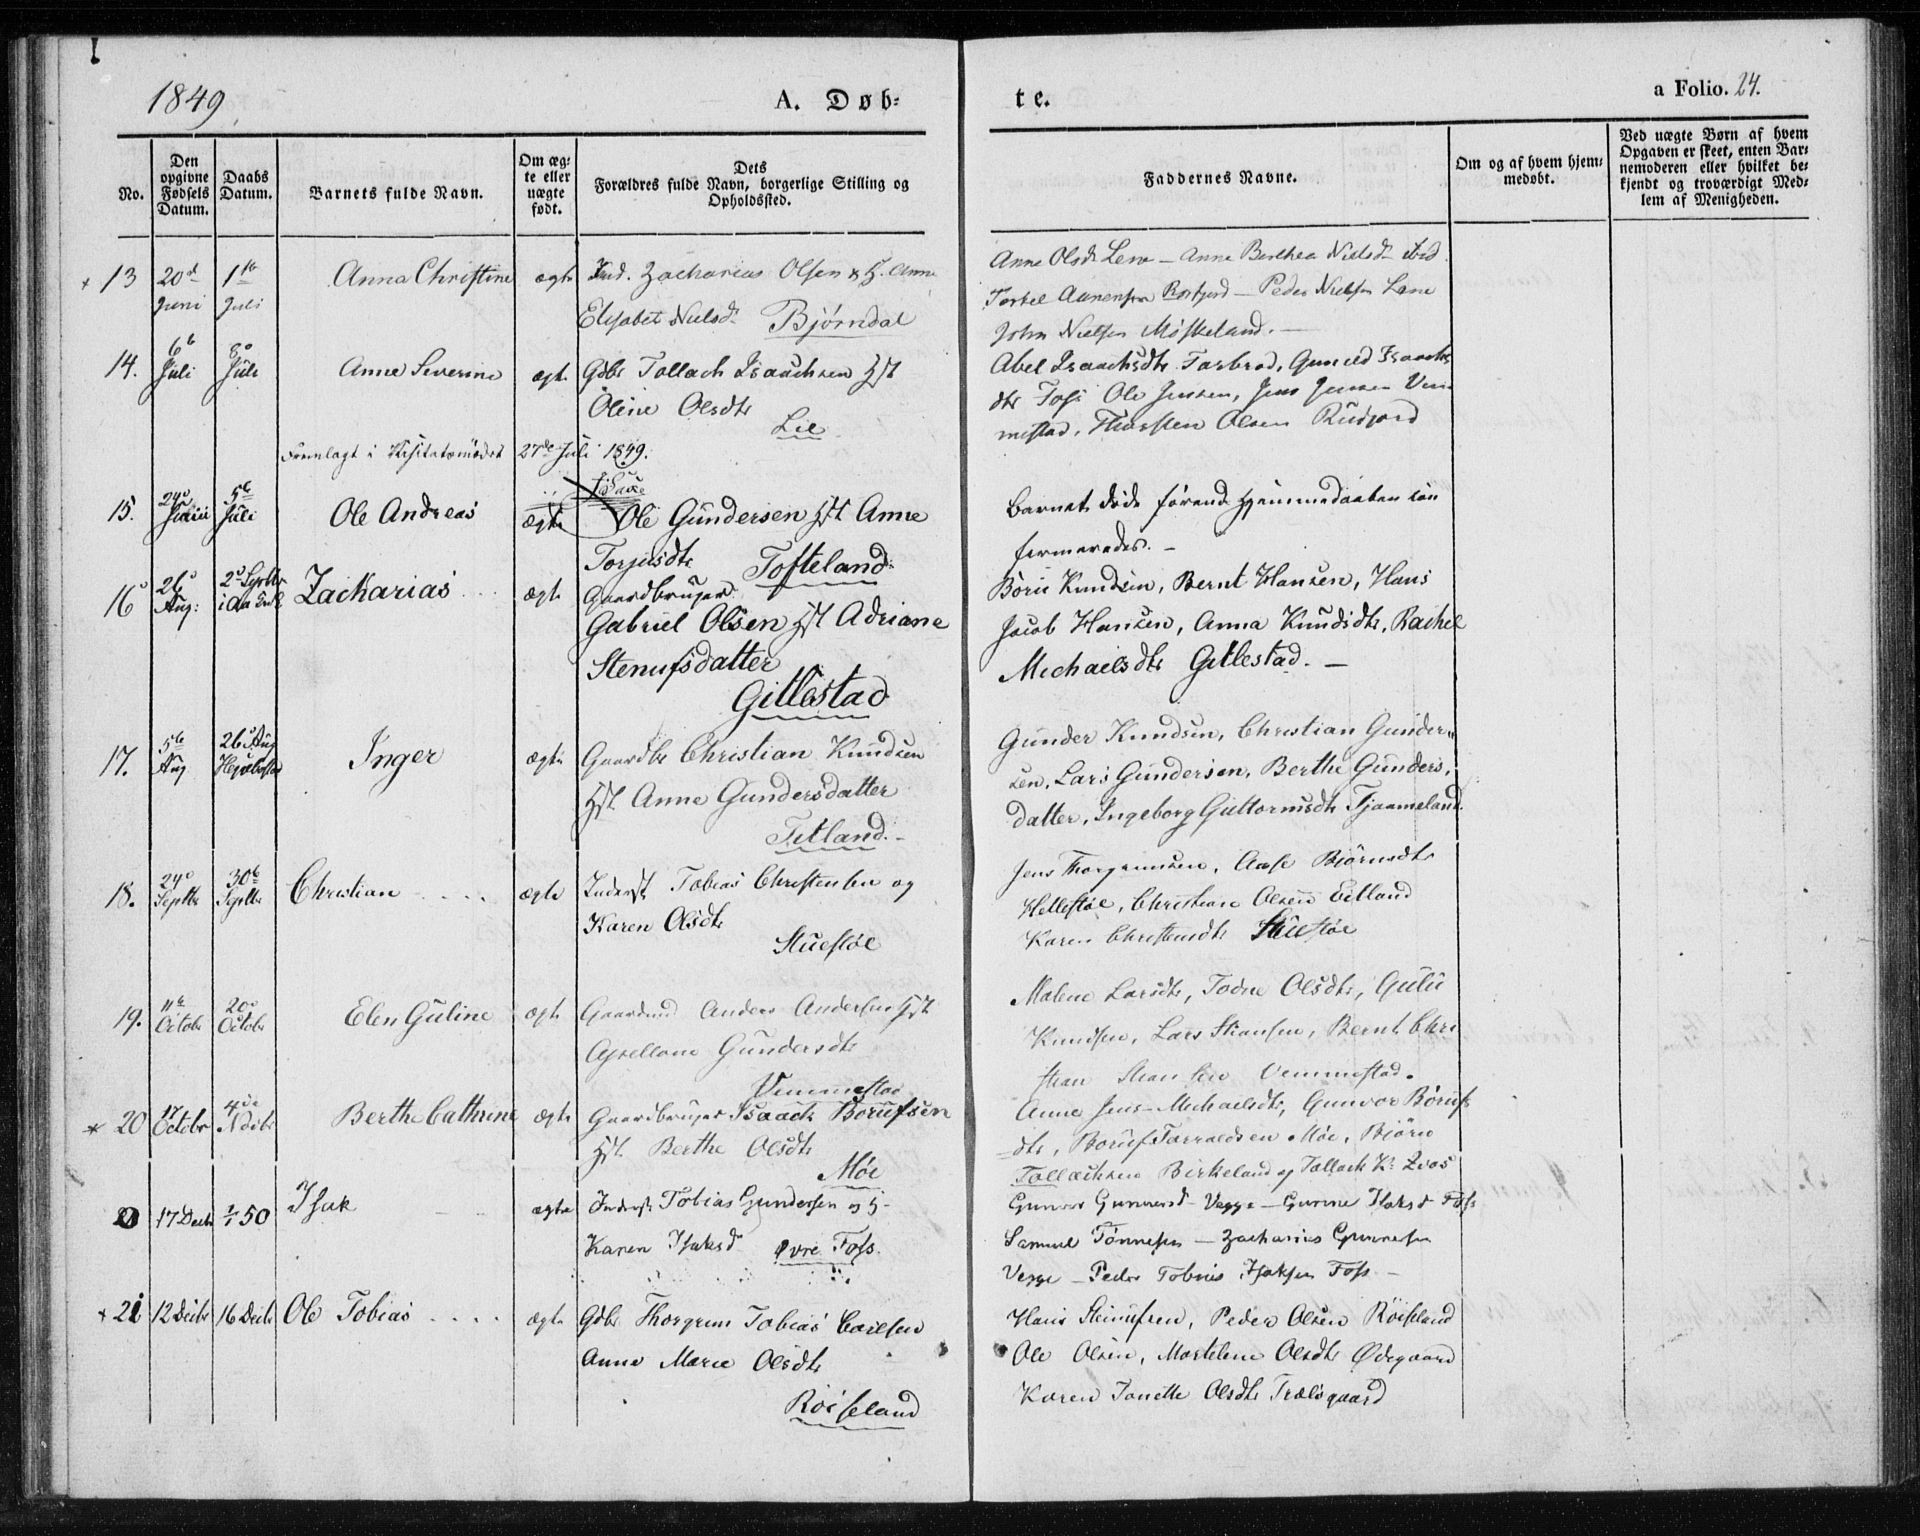 1849
A. Døb-
te.
a Folio. 24.
No.
Den opgivne Fødsels Datum.
Daabs Datum.
Barnets fulde Navn.
Om ægte eller uægte født.
Dets
Forældres fulde Navn, borgerlige Stilling og
Opholdssted.
Faddernes Navne.
Om og af hvem hjem-
medøbt.
Ved uægte Børn af hvem
Opgaven er skeet, enten Bar-
nemoderen eller hvilket be-
kjendt og troværdigt Med-
lem af Menigheden.
13 20d Juni 1ste Juli Anna Christine ægte Ind. Zacharias Olsen & H. Anne
Elisabet Nielsd. Bjørndal
Anne Olsd Lene - Anne Berthea Nielsd ibid
Torkel Aanensen - Peder Nielsen Lene
John Nielsen Møskeland. -
14. 6te Juli 8de Juli Anne Severine ægte Gdbr Tollach Isaachsen Hst
Oline Olsdtr
Lie
Abel Isaachsdtr Gunild Isaachs
dtr Foss Ole Jensen, Jens Jensen Vem
mestad, Thorsten Olsen Rudjord
Fremlagt i Visitatsmødet 27de Juli 1849.
15. 24de Juni 5te Juli Ole Andreas ægte Ole Gundersen Hst Anne
Torjusdtr Tofteland
Barnet døde førend Hjemmedaaben con
fermeredes. -
16 26de Aug: 2de Septbr Zackarias ægte Gaardbruger
Gabriel Olsen Hst Adriane
Stenufsdatter
Gitlestad
Børre Knudsen, Bernt Hansen, Hans
Jacob Hansen, Anna Knudsdtr, Rachel
Michaelsdtr Gitlestad. -
17. 5te Aug 26de Aug Inger ægte Gaardbr Christian Knudsen
Hst. Anne Gundersdatter
Titland. -
Gunder Knudsen, Christian Gunder-
sen, Lars Gundersen, Berthe Gunders-
datter, Ingeborg Guttormsdtr Tjaameland
18. 24de Septbr 30te Septbr Christian ægte Inderst Tobias Christensen og
Karen Olsdtr
Stuestøe
Jens Thorgrimsen, Aase Bjørnsdtr
Hellestøe, Christian Olsen Eitland
Karen Christensdtr Stuestøe
19. 11te Octobr 20de Octobr Elen Guline ægte Gaardmd Anders Andersen Hst
Apellone Gundersdtr
Vemmestad
Malene Larsdtr, Todne Olsdtr, Gulu
Knudsen, Lars Stiansen, Bernt Chri
stian Vemmestad.
20 17 Octobr 4de Novbr Berthe Cathrine ægte Gaardbruger Isaack Borufsen
Hst. Berthe Olsdtr
Møe
Anne Jens- Michaelsdtr, Gunvor Børufs
dtr, Boruf Tarraldsen Møe, Bjørn
Tollachsen Birkeland og Tollach K:
17 Decbr 1/1 50 Isak ægte Inderst Tobias Gundersen og H-
Karen Isaksd Øvre Foss.
Gunvor Gunnersd Vegge - Gurine Isaksd Foss
Samuel Tønnesen - Zacharias Gunnersen
Vegge - Peder Tobias Isaksen Foss -
21 12 Decbr 16 Decbr Ole Tobias ægte Gdbr Thorgrim Tobias Carlsen
Anne Marie Olsdtr
Røiseland
Hans Stenufsen, Peder Olsen Røiseland
Ole Olsen, Martelene Olsdtr Ødegaard
Karen Tonette Olsdtr Trælsgaard